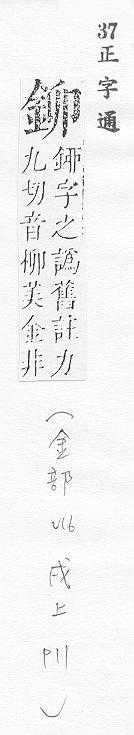 37正字通
鉚
字之譌舊註力
九切音柳美金非
（金部 戌上 P11）